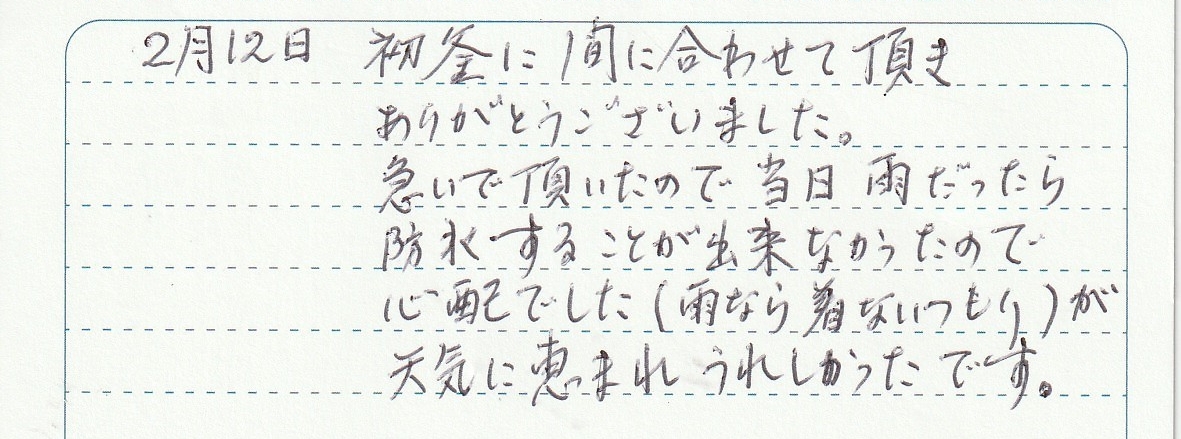 2月12日 初釜に間に合わせて頂き
ありがとうございました。
急いで頂いたので当日雨だったら
防水することが出来なかったので
心配でした(雨なら着ないつもり)が
天気に恵まれうれしかったです。